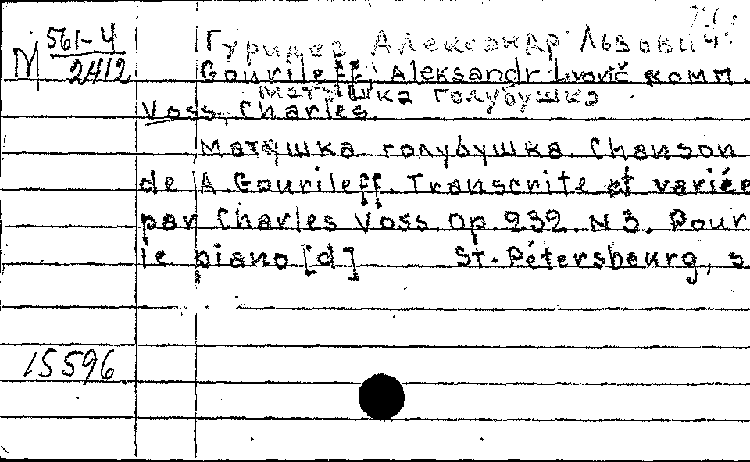 М 561-4
2412
Гурилев Александр Львович
Gourileff, Aleksandr Lvovič комп.
Матушка голубушка
Voss, Charles.
Матушка голубушка. Chanson
de A. Gourileff. Transcrite et variée
par Charles Voss. Op. 232. N 3. Pour
le piano [d] St.-Pétersbourg, s
15596